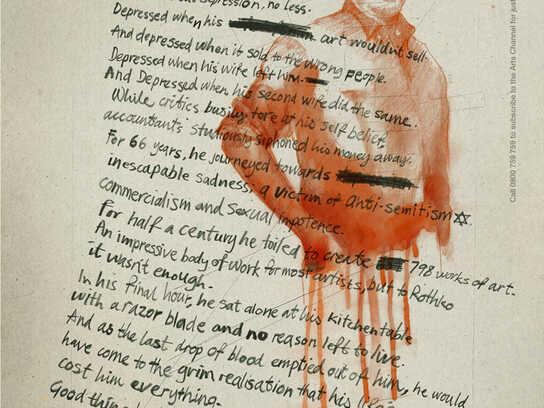 depression, no less.
Depressed when his art wouldn't sell.
And depressed when it sold to the wrong people.
Depressed when his wife left him.
And Depressed when his second wife did the same.
While critics busily tore at his self belief,
accountants studiously siphoned his money away.
For 66 years, he journeyed towards
inescapable sadness; a victim of anti-semitism
commercialism and sexual impotence.
For half a century he toiled to create 798 works of art.
An impressive body of work for most artists, but to Rothko
it wasn't enough.
In his final hour, he sat alone at his kitchen table
with a razor blade and no reason left to live.
And as the last drop of blood emptied out of him, he would
have come to the grim realisation that his
cost him everything.
Good thing
Call 0800 759 759 to subscribe to the Arts Channel for just